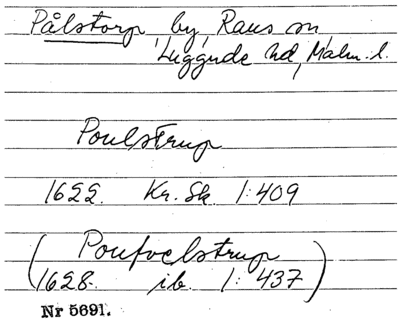 Pålstorp by, Raus sn,
Luggude hd, Malm. l.
Poulstrup
1622. Kr. Sk. 1:409
(Poufvelstrup
1628. ib. 1:437)
Nr 5691.